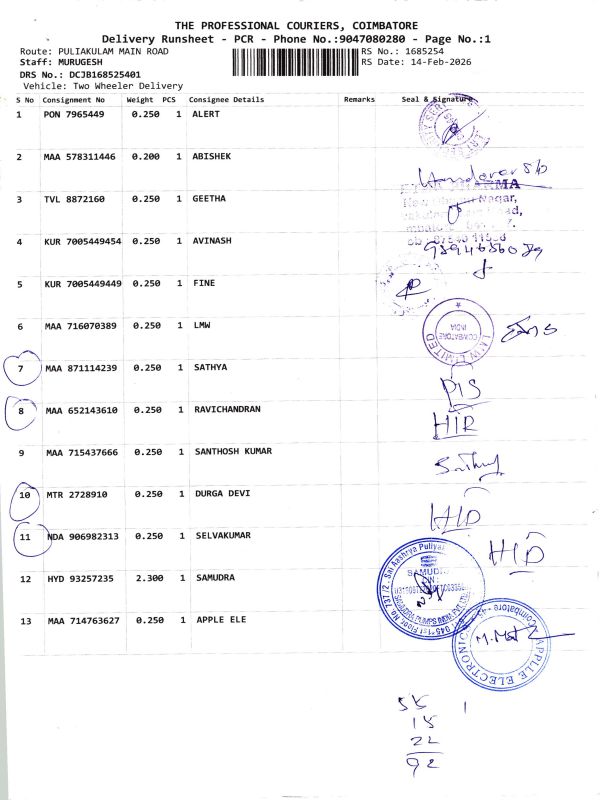 THE PROFESSIONAL COURIERS, COIMBATORE
Delivery Runsheet - PCR - Phone No.:9047080280 - Page No.:1
Route: PULIAKULAM MAIN ROAD RS No.: 1685254
Staff: MURUGESH RS Date: 14-Feb-2026
DRS No.: DCJB168525401
Vehicle: Two Wheeler Delivery
S No Consignment No Weight PCS Consignee Details Remarks Seal & Signature
1 PON 7965449 0.250 1 ALERT
2 MAA 578311446 0.200 1 ABISHEK
3 TVL 8872160 0.250 1 GEETHA
4 KUR 7005449454 0.250 1 AVINASH
5 KUR 7005449449 0.250 1 FINE
6 MAA 716070389 0.250 1 LMW
LMW LIMITED
COIMBATORE
INDIA
7 MAA 871114239 0.250 1 SATHYA
8 MAA 652143610 0.250 1 RAVICHANDRAN
9 MAA 715437666 0.250 1 SANTHOSH KUMAR
10 MTR 2728910 0.250 1 DURGA DEVI
11 NDA 906982313 0.250 1 SELVAKUMAR
H/D
12 HYD 93257235 2.300 1 SAMUDRA
SAMUDRA
13 MAA 714763627 0.250 1 APPLE ELE
APPLE ELECTRONICS
Coimbatore - 45
22
92